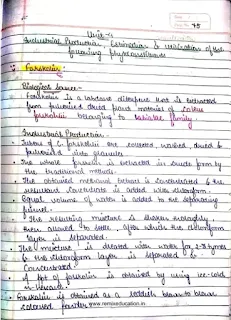 Unit-4
Industrial Production, Estimation & utilization of the
following phytoconstituents
Forskolin
Biological Source-
Forskolin is a labdane diterpene that is extracted
from pulverised dried plant material of Coleus
forskohlii belonging to Lamiaceae family
Industrial Production-
Tubers of C. forskohlii are collected, washed, dried &
pulverised into granules.
The whole process is extracted in crude form by
the traditional methods.
The obtained methanol extract is concentrated & the
resultant concentrate is added with chloroform.
Equal volume of water is added to the separating
funnel.
The resulting mixture is shaken thoroughly &
then allowed to settle, after which the chloroform
layer is separated.
The mixture is treated with water for 2-3 times
& the chloroform layer is separated &
concentrated.
A lot of forskolin is obtained by using ice-cold
n-hexane.
Forskolin is obtained as a reddish brown to brown
coloured powder.
www.remixeducation.in